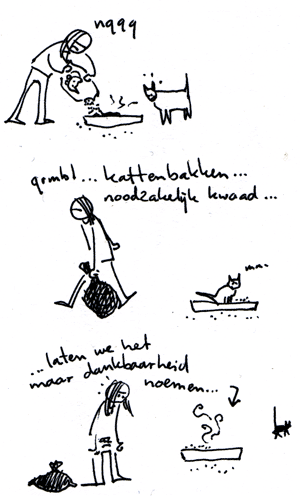 nggg
grmbl... kattenbakken...
noodzakelijk kwaad...
ma-
...laten we het
maar dankbaarheid
noemen...